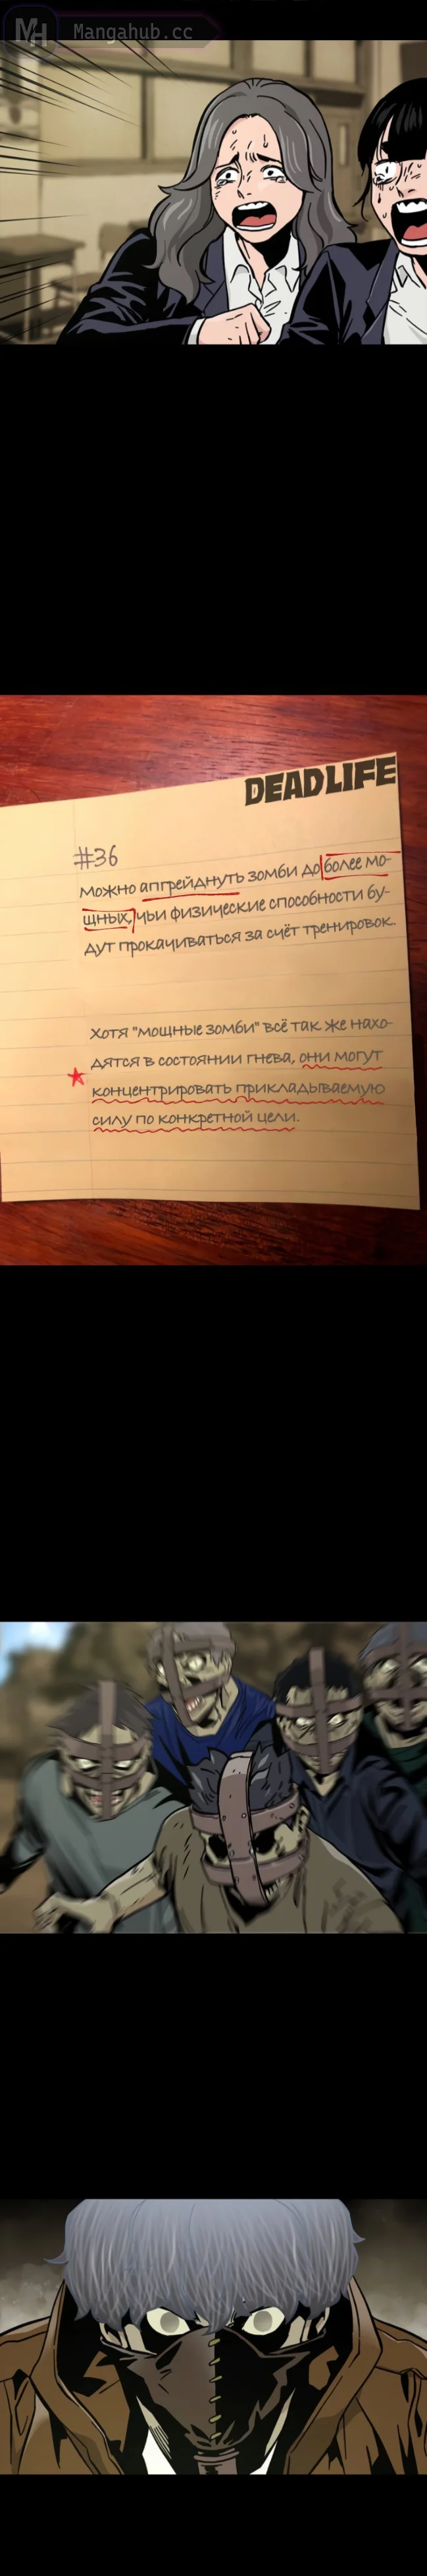 MH Mangahub.cc
DEADLIFE
#36
можно апгрейднуть зомби до более мо-
щных, чьи физические способности бу-
дут прокачиваться за счёт тренировок.
Хотя "мощные зомби" всё так же нахо-
дятся в состоянии гнева, они могут
концентрировать прикладываемую
силу по конкретной цели.